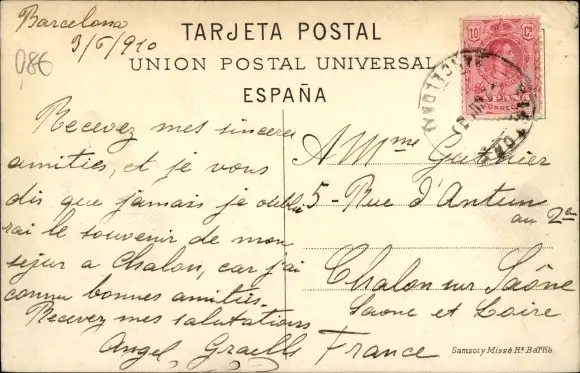 Barcelona
3/6/910
086
TARJETA POSTAL
UNION POSTAL UNIVERSAL
ESPAÑA
10 Cs
Recevez mes sinceres
amities, et je vous
dis que jamais je oublie
rai le souvenir de mon
sejur a Chalon, car j'ai
connu bonnes amities.
Recevez mes salutations
Angel Graells
A Mme
5 - Rue d'Antun
au 2e
Chalon sur Saône
Saone et Loire
France
Samsot y Missé Hs Barna